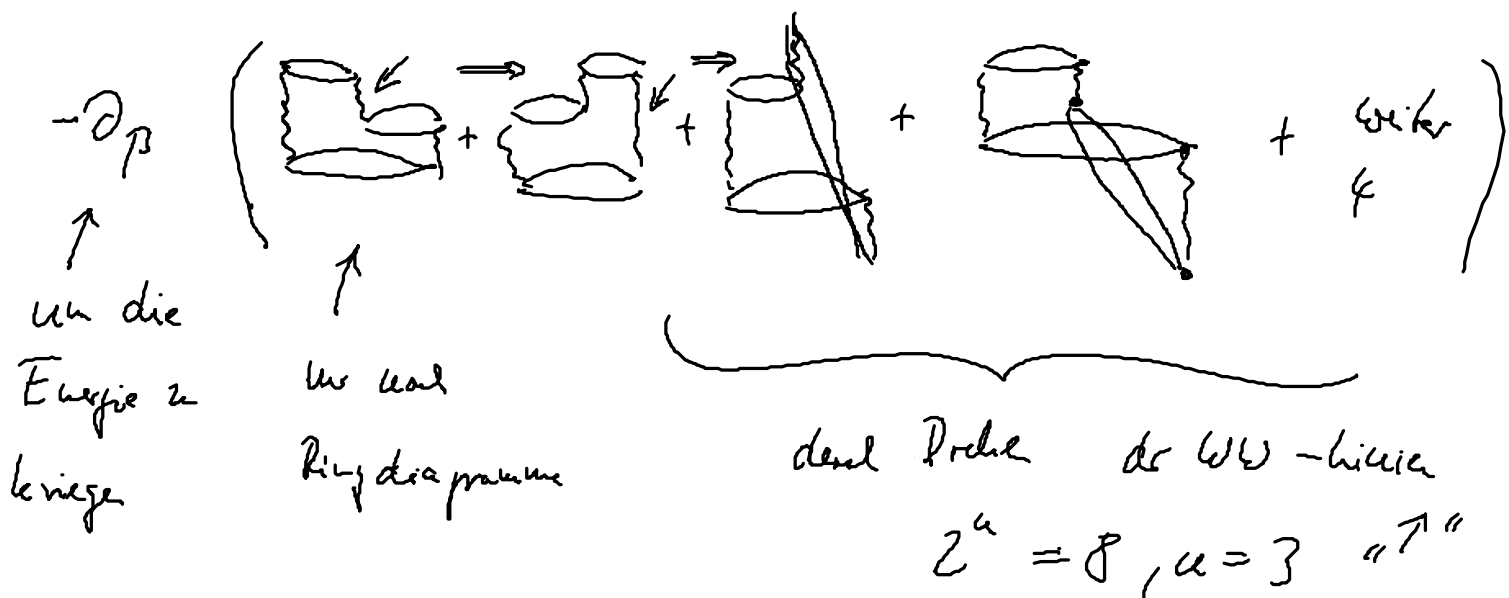 -∂β ( + + + + weiter
4 )
um die
Energie zu
kriegen
nur noch
Ringdiagramme
durch Drehen der WW-Linien
2^n = 8, n = 3 "↑"